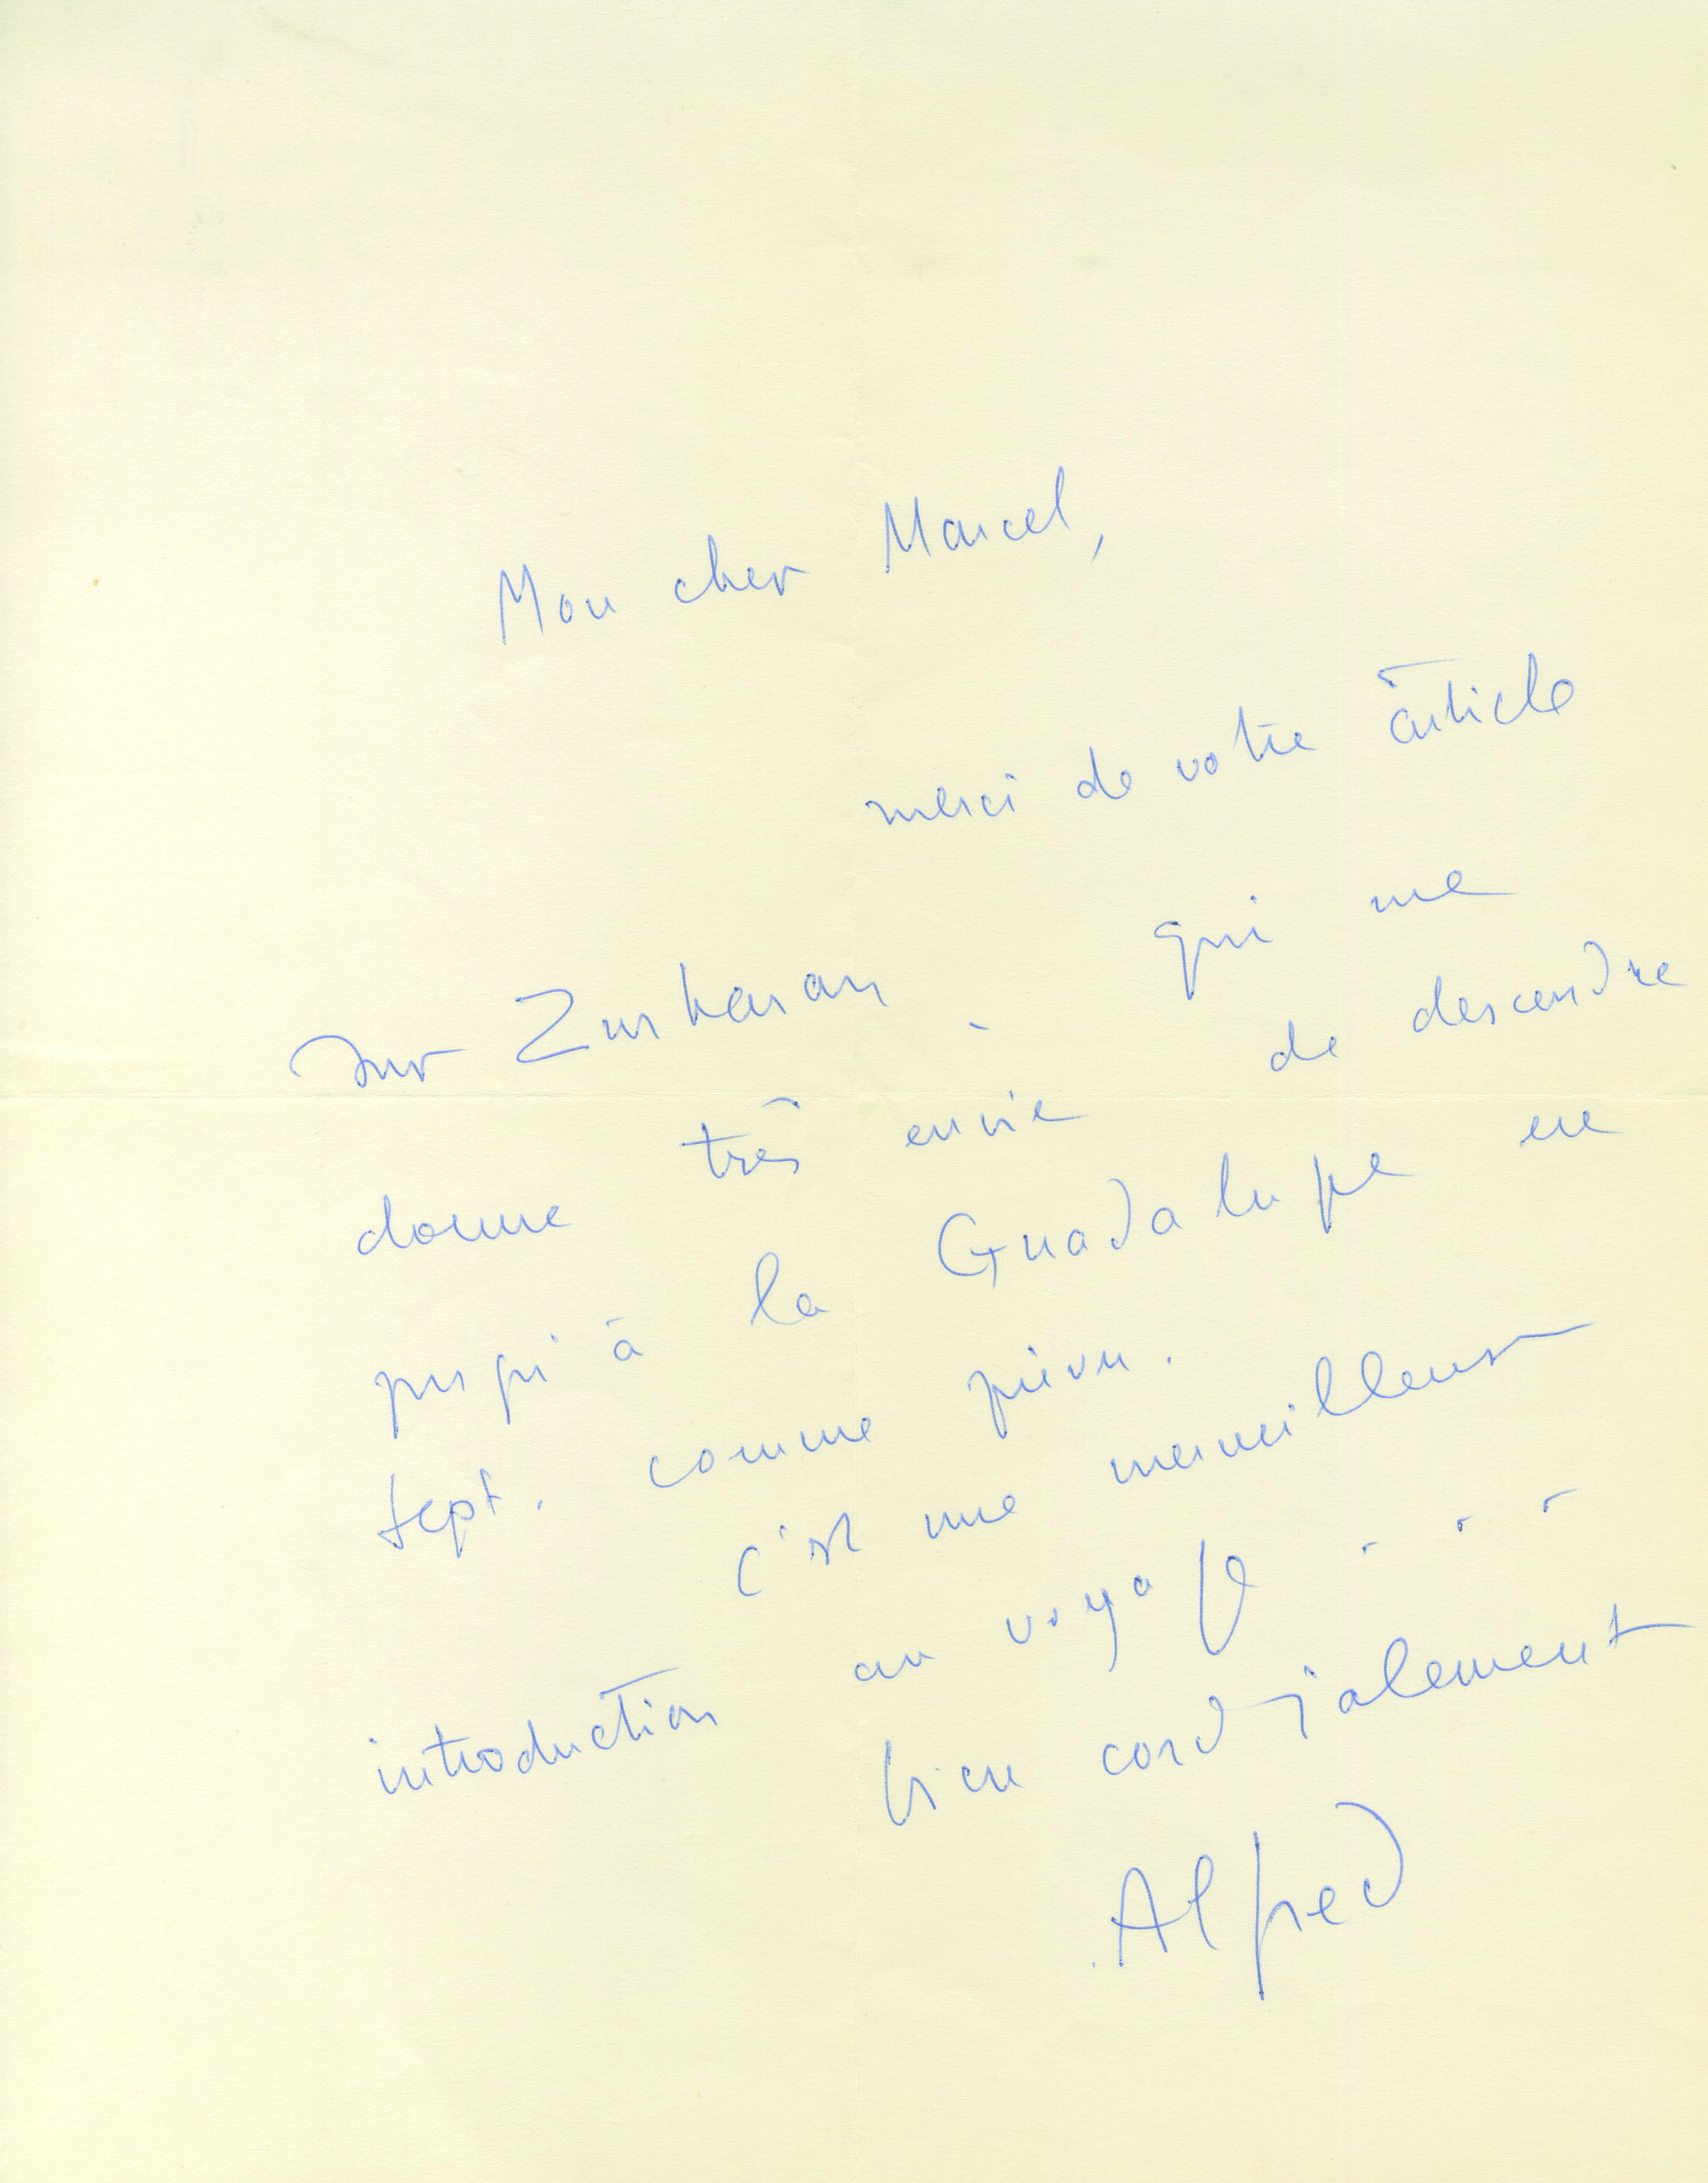 Mon cher Marcel,
merci de votre article
sur Zurbaran - qui me
donne très envie de descendre
jusqu'à la Guadalupe en
sept. comme prévu.
c'est une merveilleuse
introduction au voyage . . .
bien cordialement
Alfred